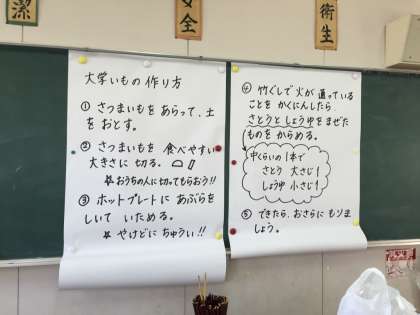 潔
安全
衛生
大学いもの 作り方
① さつまいもを あらって、土
を おとす。
② さつまいもを 食べやすい
大きさに 切る。
☆おうちの人に切ってもらおう!!
③ ホットプレートに あぶらを
しいて いためる。
☆ やけどに ちゅうい!!
④ 竹ぐしで火が 通っている
ことを かくにんしたら
さとうと しょうゆをまぜた
ものを からめる。
中くらいの1本で
さとう 大さじ1
しょうゆ 小さじ1
⑤ できたら、おさらに もりま
しょう。